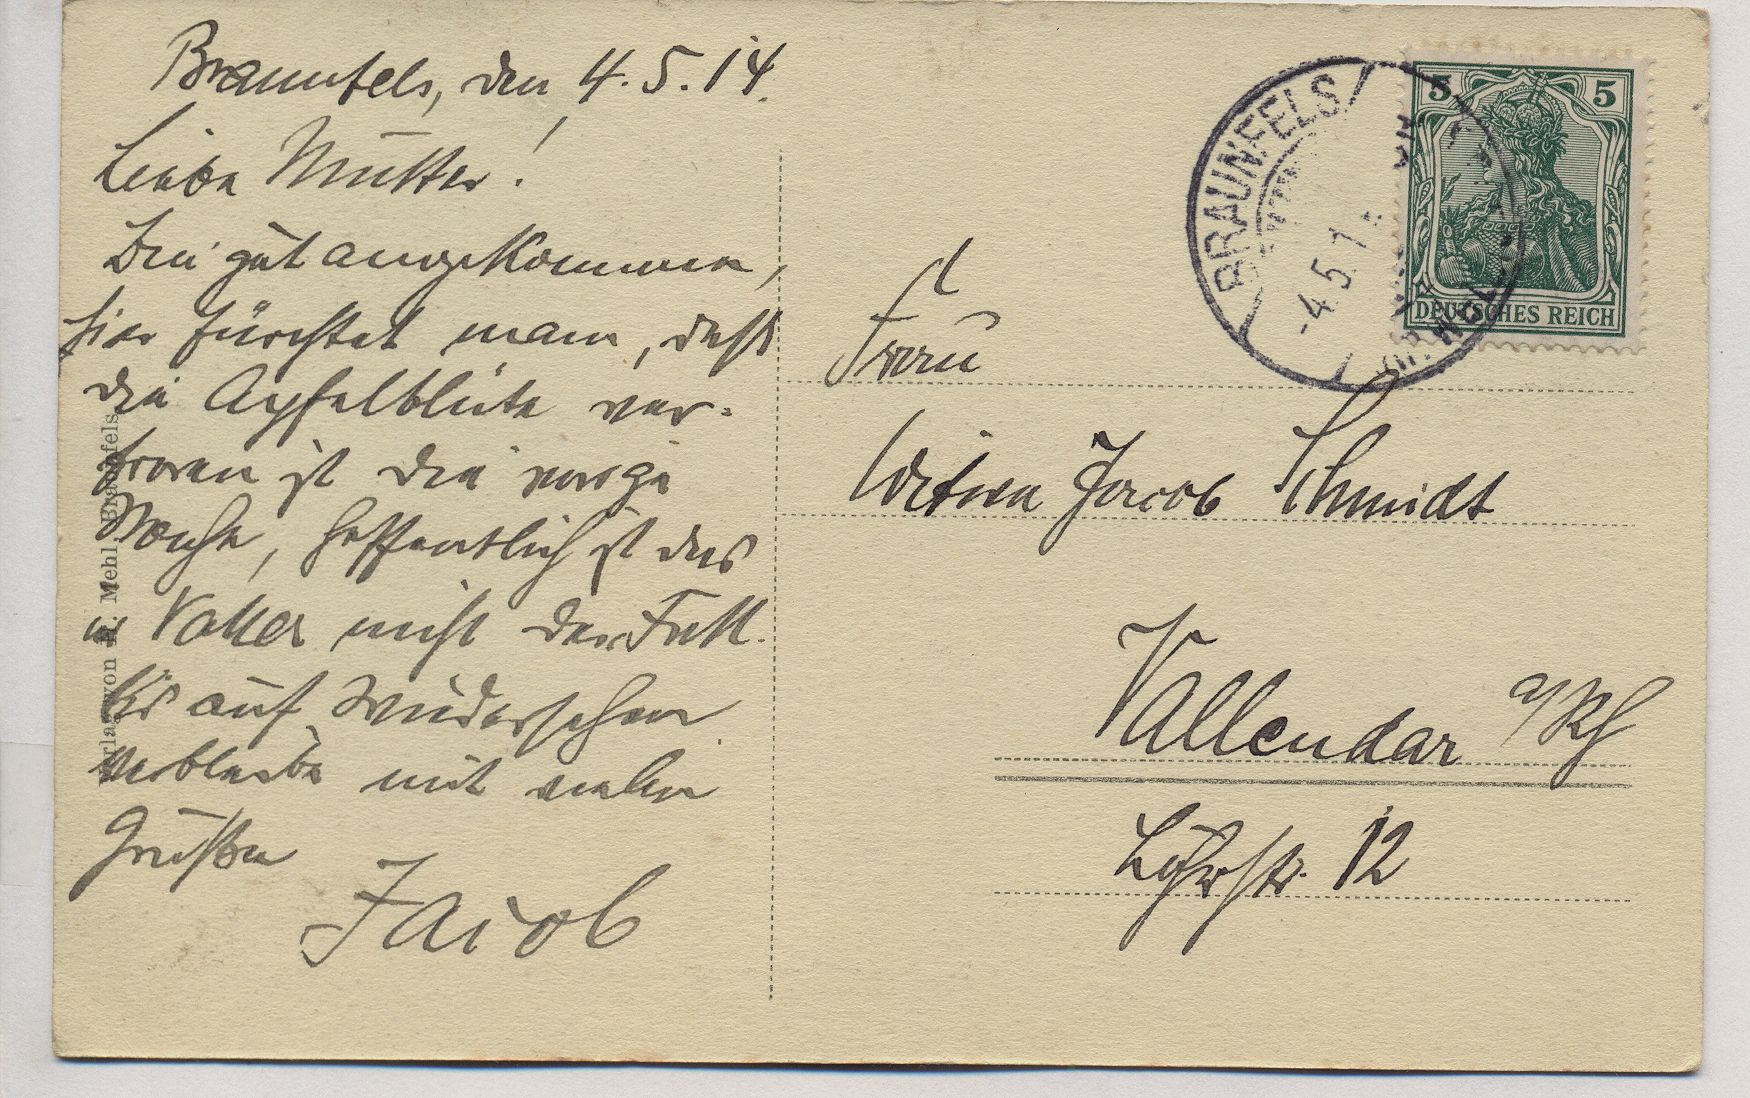 Braunfels, den 4.5.14.
Liebe Mutter!
Bin gut angekommen,
hier fürchtet man, daß
die Apfelblüte ver-
froren ist die vorige
Woche, hoffentlich ist das
in Valler nicht der Fall.
Bis auf Wiedersehen
verbleibe mit vielen
Grüßen
Jacob
Verlag von E. Mehl, Braunfels
BRAUNFELS
-4.5.1
5 5
DEUTSCHES REICH
Frau
Witwe Jacob Schmidt
Vallendar a/Rh
Löhrstr. 12